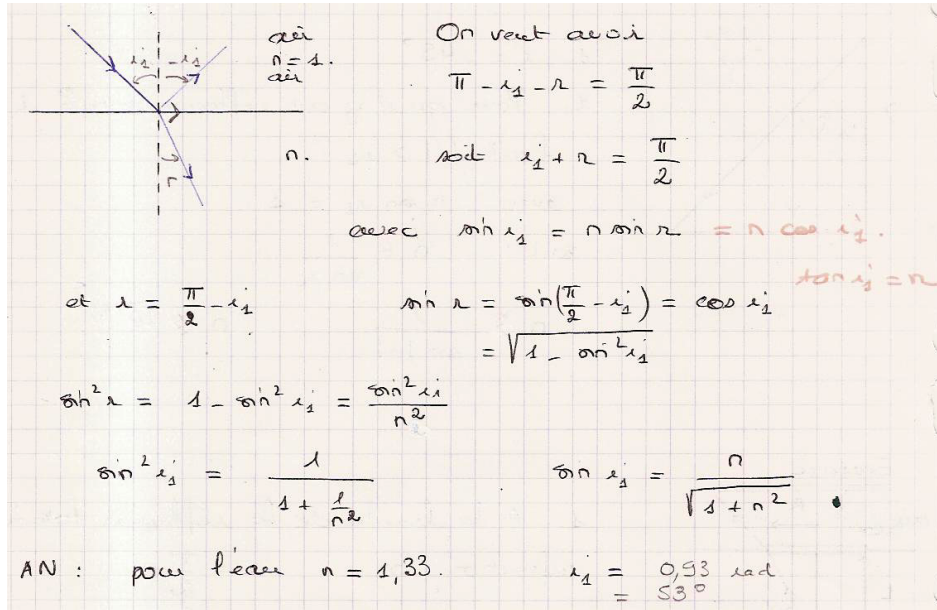 air
n = 1.
air
On veut avoir
i₁ -i₁
π - i₁ - r = π/2
n.
r
soit i₁ + r = π/2
avec sin i₁ = n sin r = n cos i₁.
tan i₁ = n
et r = π/2 - i₁
sin r = sin(π/2 - i₁) = cos i₁
= √(1 - sin² i₁)
sin² r = 1 - sin² i₁ = sin² i₁/n²
sin² i₁ = 1/(1 + 1/n²)
sin i₁ = n/√(1 + n²) .
AN : pour l'eau n = 1,33.
i₁ = 0,93 rad
= 53°